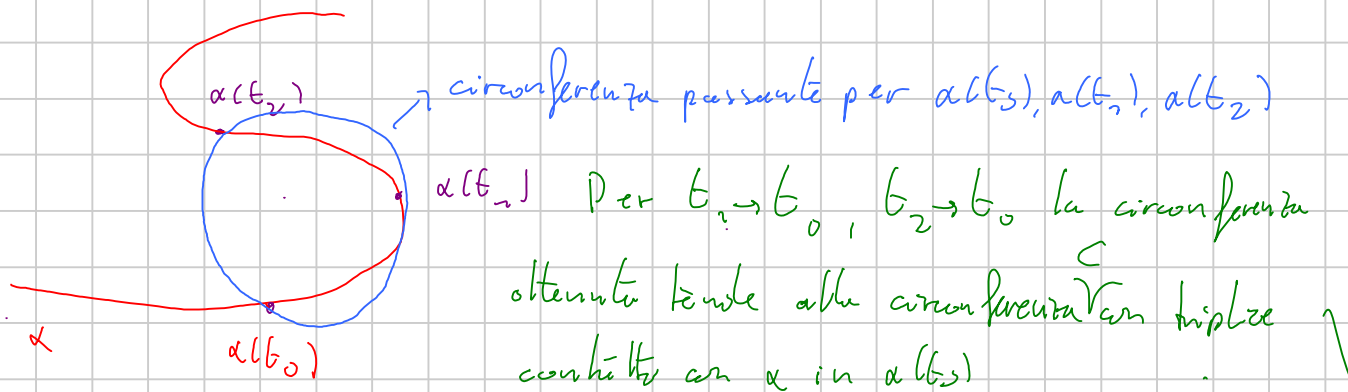 α(t₂)
circonferenza passante per α(t₀), α(t₁), α(t₂)
α(t₁)
Per t₁→t₀, t₂→t₀ la circonferenza
ottenuta tende alla circonferenza C con triplice
contatto con α in α(t₀)
α
α(t₀)